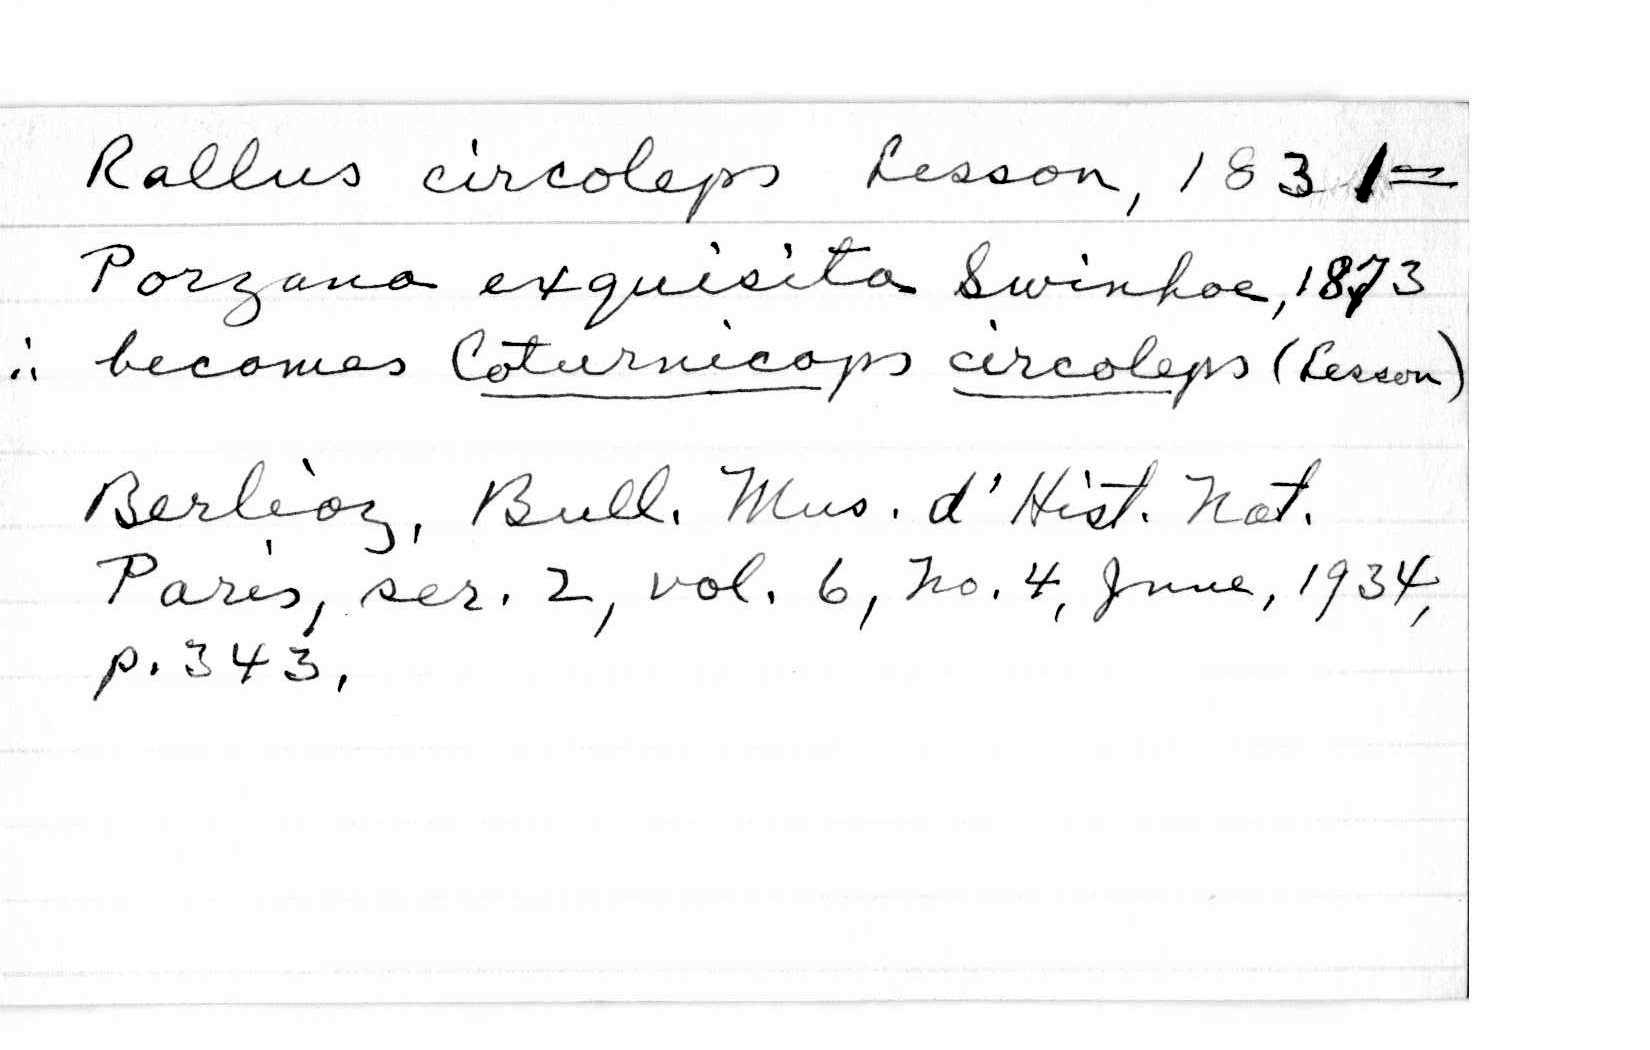 Rallus circoleps Lesson, 1831=
Porzana exquisita Swinhoe, 1873
∴ becomes Coturnicops circoleps (Lesson)
Berlioz, Bull. Mus. d'Hist. Nat.
Paris, ser. 2, vol. 6, no. 4, June, 1934,
p. 343.